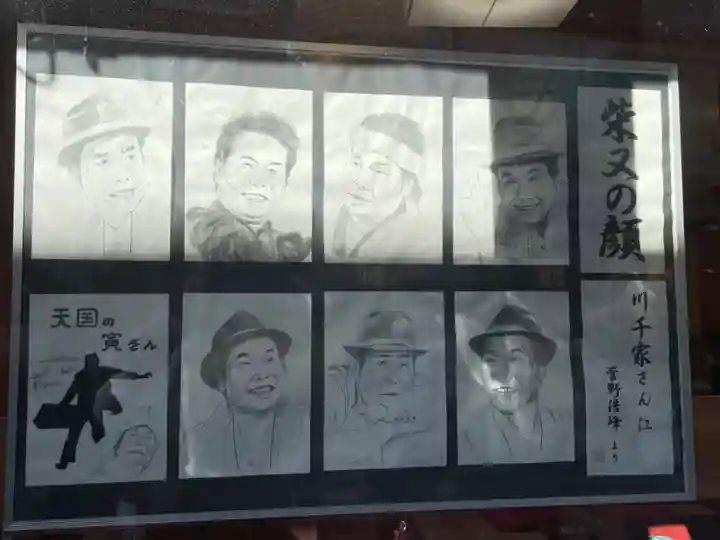 柴又の顔
天国の
寅さん
川千家さん江
菅野浩峰より